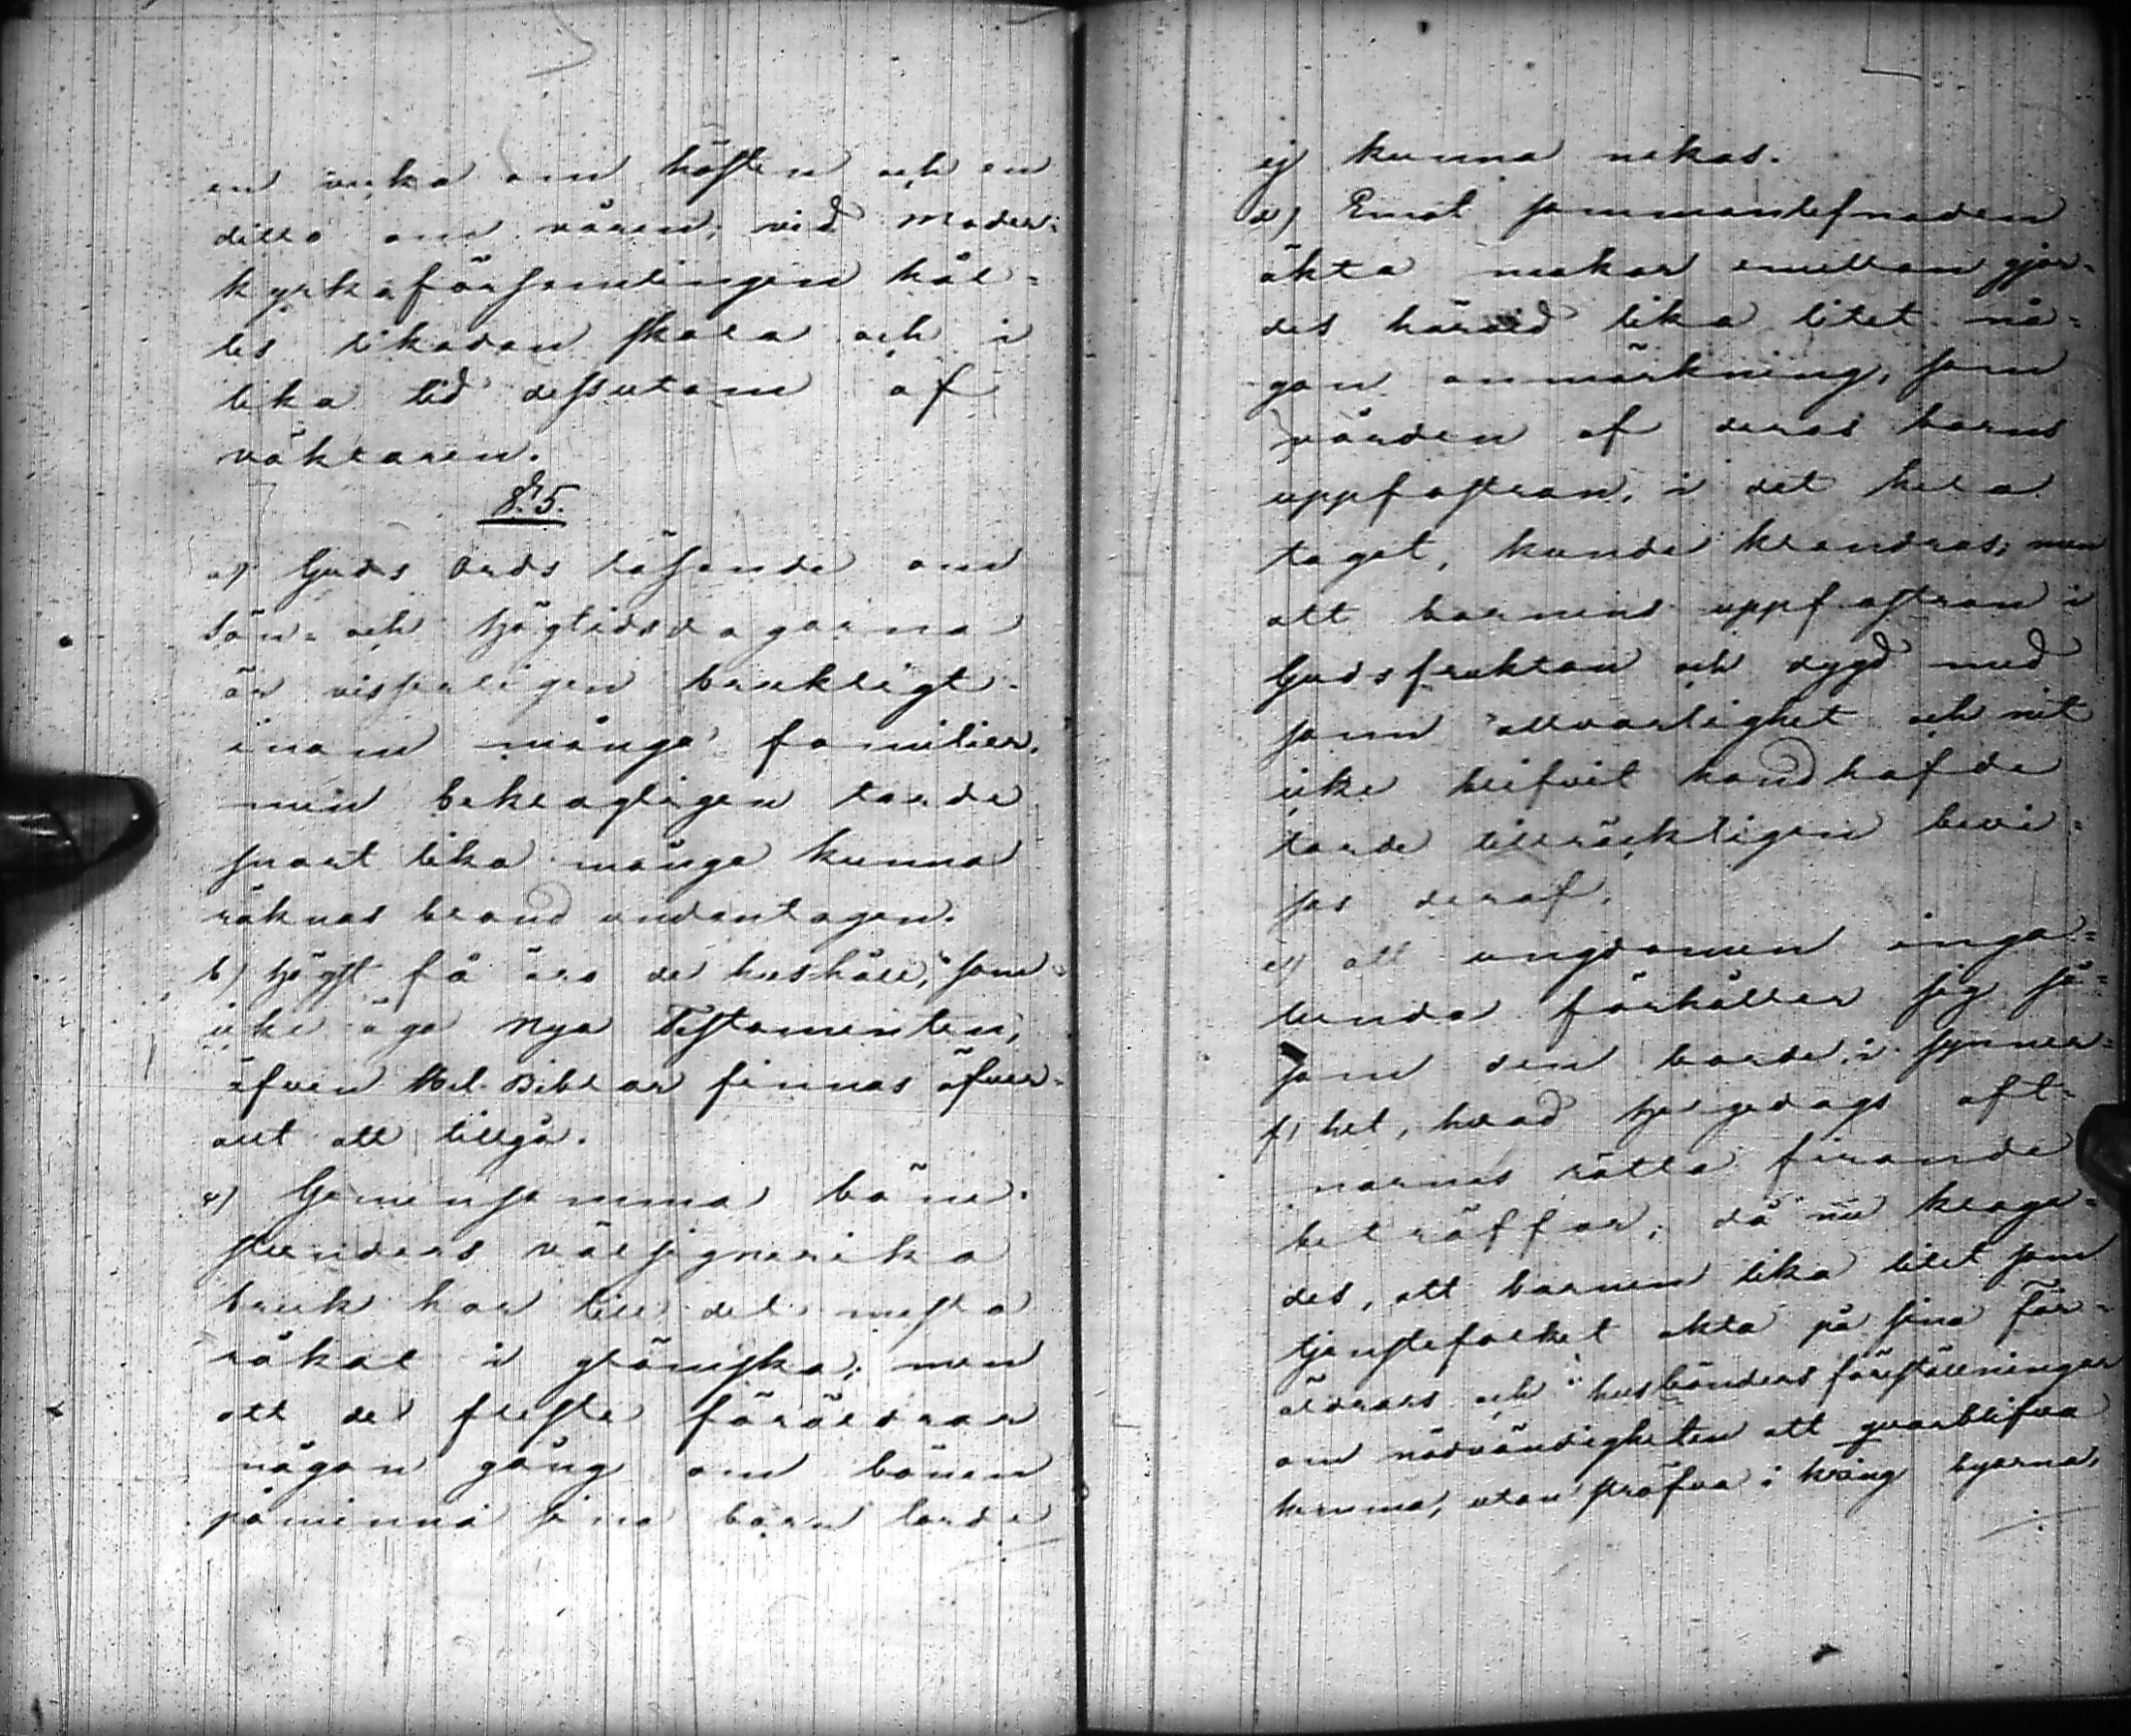 en vecka om hösten och en
ditto om våren; vid Moder-
kyrkaförsamlingen hål-
les likadan skola och i
lika tid dessutom af
väktaren.
§. 5.
a) Guds Ords läsande om
Sön- och Högtidsdagarna
är visserligen brukligt
inom många familier,
men beklagligen torde
snart lika många kunna
räknas bland undantagen.
b) Högst få äro de hushåll, som
icke äga Nya Testamenten,
äfven Hel. Biblar finnas öfver-
alt att tillgå.
c) Gemensamma böne-
stunders välsignerika
bruk har till det mesta
råkat i glömska; men
att de fleste föräldrar
någon gång om bönen
påminna sina barn torde
ej kunna nekas.
d) Emot sammanlefnaden
äkta makar emellan gjor-
des härvid lika litet nå-
gon anmärkning, som
vården af deras barns
uppfostran, i det hela
taget, kunde klandras; men
att barnens uppfostran i
Gudsfruktan och dygd med
sann allvarlighet och nit
icke blifvit handhafde
torde tillräckligen bevi-
sas deraf,
e) att ungdomen inga-
lunda förhåller sig så-
som den borde, i synner-
f) het, hvad helgedags aft-
narnes rätta firande
beträffar; då nu klaga-
des, att barnen lika litet som
tjenstefolket akta på sina för-
äldrars och husbönders föreställningar
om nödvändigheten att qvarblifva
hemma, utan ströfva i kring byarna,